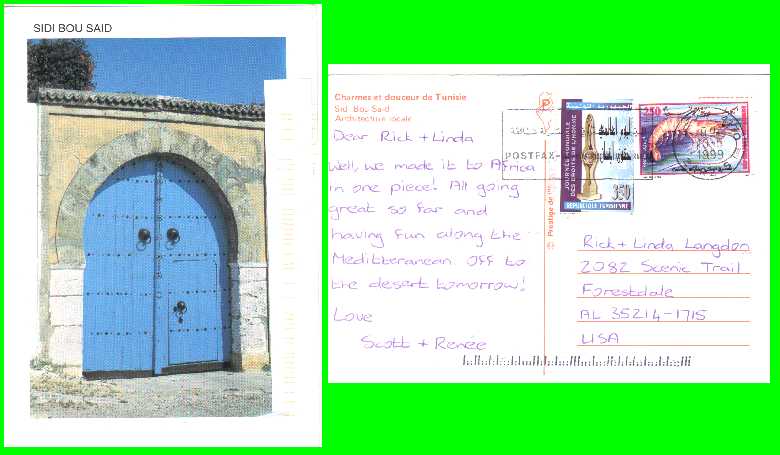 SIDI BOU SAID
Charmes et douceur de Tunisie
Sidi Bou Said
Architecture locale
Dear Rick + Linda
Well, we made it to Africa
in one piece! All going
great so far and
having fun along the
Meditterranean. Off to
the desert tomorrow!
Love
Scott + Renée
Prestige de
POSTFAX
JOURNÉE MONDIALE
DES DROITS DE L'HOMME
350
REPUBLIQUE TUNISIENNE
250
1999
Rick + Linda Langdon
2082 Scenic Trail
Forestdale
AL 35214-1715
USA